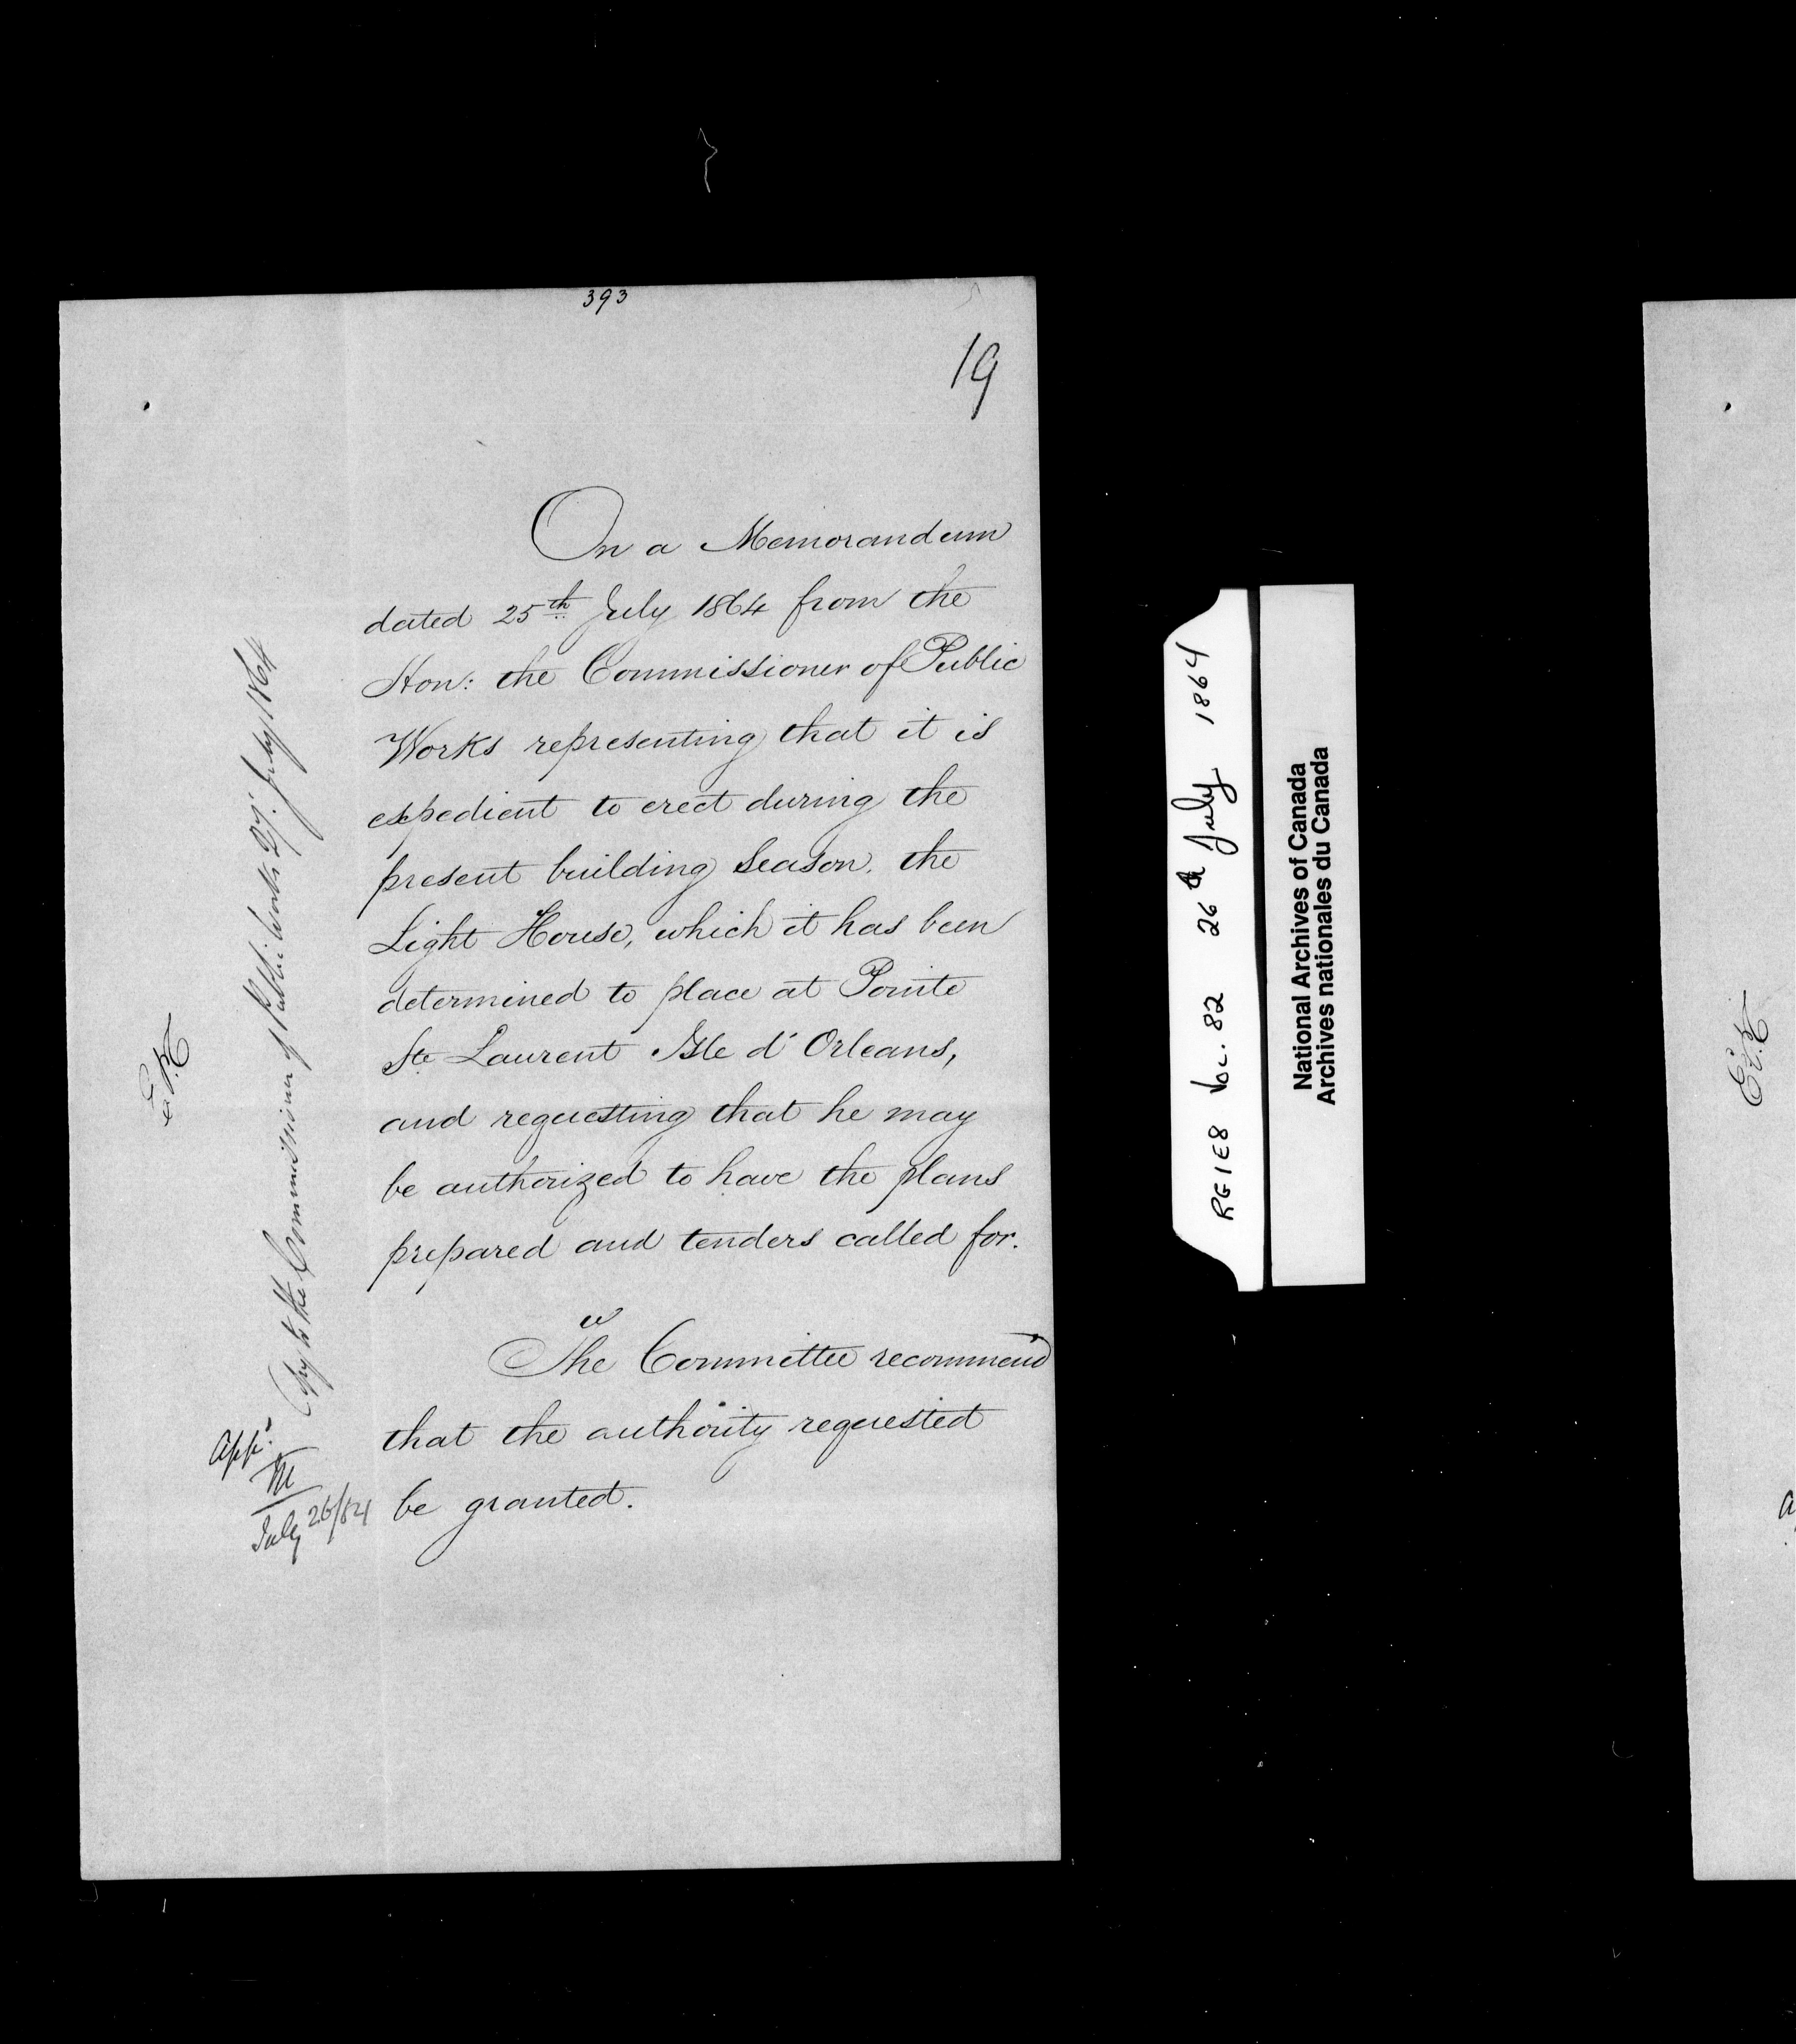 393
19
On a Memorandum
dated 25th July 1864 from the
Hon: the Commissioner of Public
Works representing that it is
expedient to erect during the
present building season, the
Light House, which it has been
determined to place at Pointe
Ste Laurent Isle d'Orleans,
and requesting that he may
be authorized to have the plans
prepared and tenders called for.
The Committee recommend
that the authority requested
be granted.
Copy to the Commissioner of Public Works 27. July 1864
Appd.
M
July 26/64
RG1E8 Vol. 82 26th July 1864
National Archives of Canada
Archives nationales du Canada